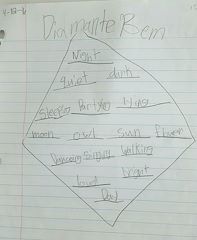 Diamante Poem
Night
quiet dark
sleeping Partying Lying
moon owl sun flower
Dancing singing Walking
loud bright
Day